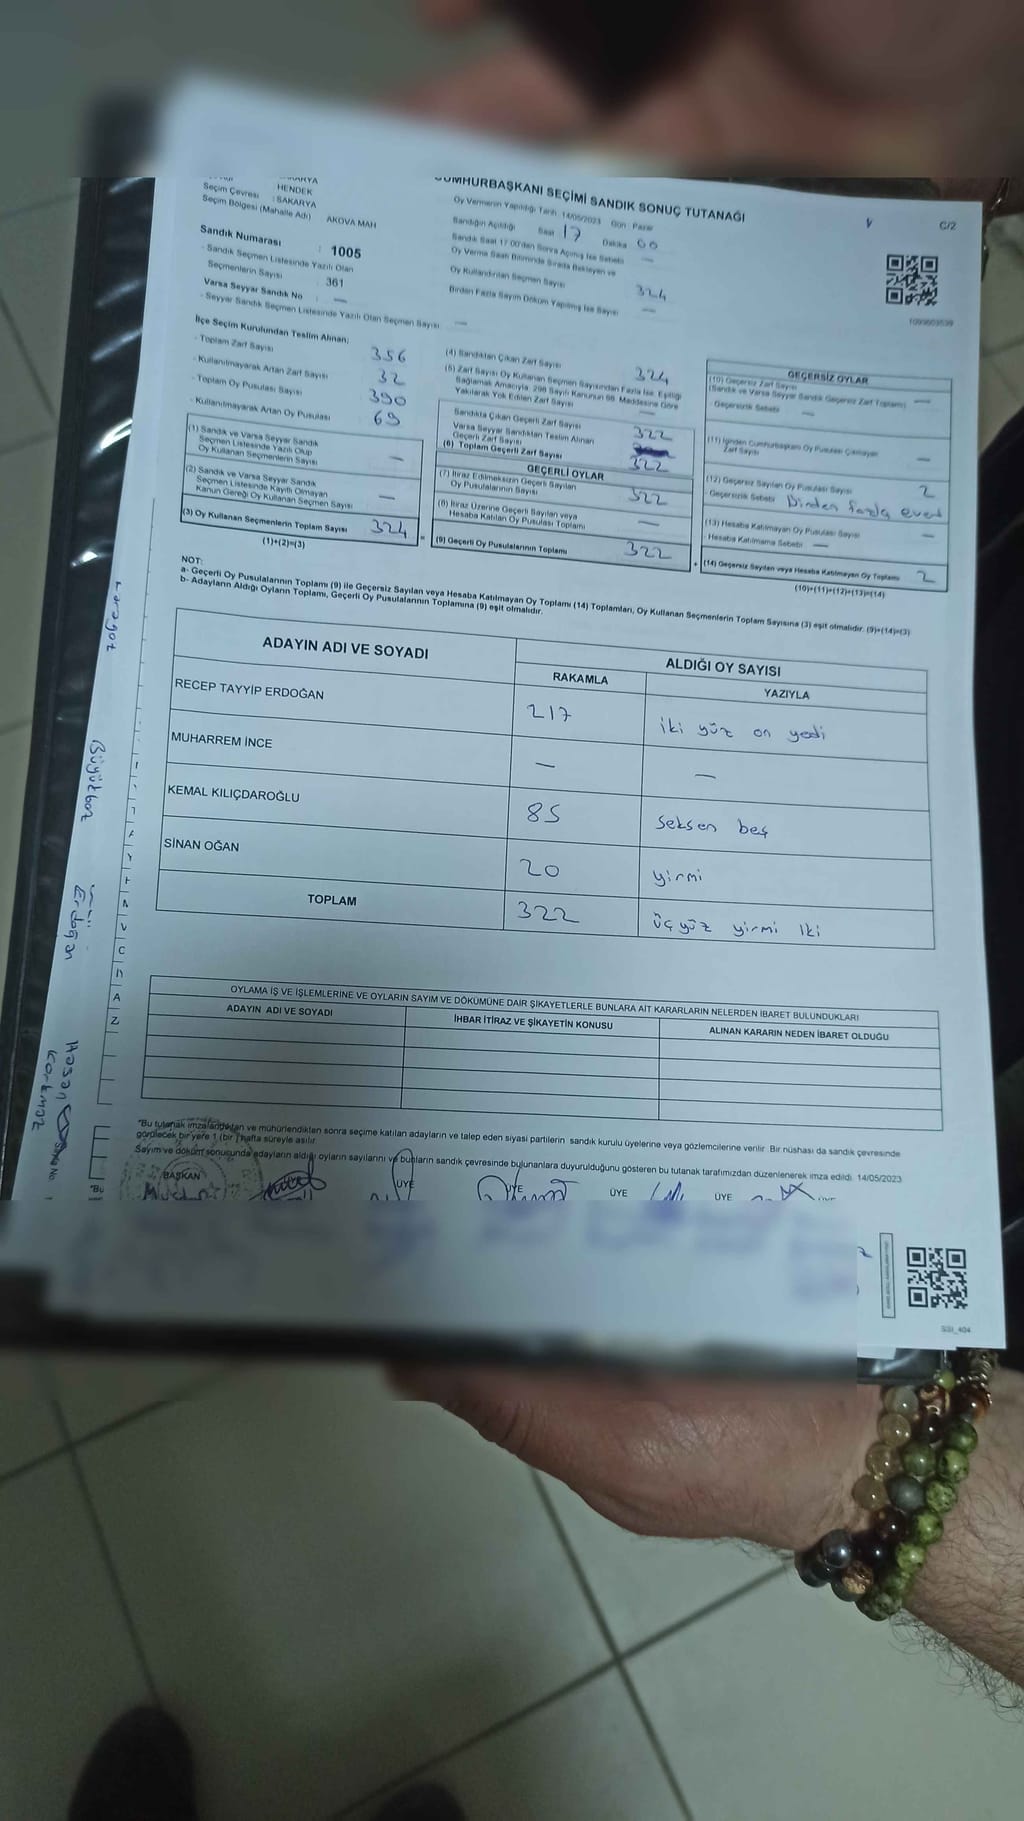 CUMHURBAŞKANI SEÇİMİ SANDIK SONUÇ TUTANAĞI
C/2
HENDEK
Seçim Çevresi : SAKARYA
Seçim Bölgesi (Mahalle Adı) AKOVA MAH
Sandık Numarası : 1005
- Sandık Seçmen Listesinde Yazılı Olan
Seçmenlerin Sayısı : 361
Varsa Seyyar Sandık No : —
- Seyyar Sandık Seçmen Listesinde Yazılı Olan Seçmen Sayısı —
Oy Vermenin Yapıldığı Tarih 14/05/2023 Gün : Pazar
Sandığın Açıldığı Saat 17 Dakika 00
Sandık Saat 17:00'dan Sonra Açılmış İse Sebebi —
Oy Verme Saati Bitiminde Sırada Bekleyen ve
Oy Kullandırılan Seçmen Sayısı 324
Birden Fazla Sayım Döküm Yapılmış İse Sayısı —
İlçe Seçim Kurulundan Teslim Alınan;
- Toplam Zarf Sayısı 356
- Kullanılmayarak Artan Zarf Sayısı 32
- Toplam Oy Pusulası Sayısı 390
- Kullanılmayarak Artan Oy Pusulası 69
(1) Sandık ve Varsa Seyyar Sandık
Seçmen Listesinde Yazılı Olup
Oy Kullanan Seçmenlerin Sayısı —
(2) Sandık ve Varsa Seyyar Sandık
Seçmen Listesinde Kayıtlı Olmayan
Kanun Gereği Oy Kullanan Seçmen Sayısı —
(3) Oy Kullanan Seçmenlerin Toplam Sayısı 324
(1)+(2)=(3)
(4) Sandıktan Çıkan Zarf Sayısı 324
(5) Zarf Sayısı Oy Kullanan Seçmen Sayısından Fazla İse, Eşitliği
Sağlamak Amacıyla, 298 Sayılı Kanunun 98. Maddesine Göre
Yakılarak Yok Edilen Zarf Sayısı —
Sandıkta Çıkan Geçerli Zarf Sayısı 322
Varsa Seyyar Sandıktan Teslim Alınan
Geçerli Zarf Sayısı
(6) Toplam Geçerli Zarf Sayısı 322
GEÇERLİ OYLAR
(7) İtiraz Edilmeksizin Geçerli Sayılan
Oy Pusulalarının Sayısı 322
(8) İtiraz Üzerine Geçerli Sayılan veya
Hesaba Katılan Oy Pusulası Toplamı —
(9) Geçerli Oy Pusulalarının Toplamı 322
GEÇERSİZ OYLAR
(10) Geçersiz Zarf Sayısı
(Sandık ve Varsa Seyyar Sandık Geçersiz Zarf Toplamı) —
- Geçersizlik Sebebi —
(11) İçinden Cumhurbaşkanı Oy Pusulası Çıkmayan
Zarf Sayısı —
(12) Geçersiz Sayılan Oy Pusulası Sayısı 2
- Geçersizlik Sebebi Birden fazla evet
(13) Hesaba Katılmayan Oy Pusulası Sayısı —
- Hesaba Katılmama Sebebi —
(14) Geçersiz Sayılan veya Hesaba Katılmayan Oy Toplamı 2
(10)+(11)+(12)+(13)=(14)
NOT:
a- Geçerli Oy Pusulalarının Toplamı (9) ile Geçersiz Sayılan veya Hesaba Katılmayan Oy Toplamı (14) Toplamları, Oy Kullanan Seçmenlerin Toplam Sayısına (3) eşit olmalıdır. (9)+(14)=(3)
b- Adayların Aldığı Oyların Toplamı, Geçerli Oy Pusulalarının Toplamına (9) eşit olmalıdır.
ADAYIN ADI VE SOYADI ALDIĞI OY SAYISI
RAKAMLA YAZIYLA
RECEP TAYYİP ERDOĞAN 217 iki yüz on yedi
MUHARREM İNCE — —
KEMAL KILIÇDAROĞLU 85 seksen beş
SİNAN OĞAN 20 yirmi
TOPLAM 322 üçyüz yirmi iki
OYLAMA İŞ VE İŞLEMLERİNE VE OYLARIN SAYIM VE DÖKÜMÜNE DAİR ŞİKAYETLERLE BUNLARA AİT KARARLARIN NELERDEN İBARET BULUNDUKLARI
ADAYIN ADI VE SOYADI İHBAR İTİRAZ VE ŞİKAYETİN KONUSU ALINAN KARARIN NEDEN İBARET OLDUĞU
"Bu tutanak imzalandıktan ve mühürlendikten sonra seçime katılan adayların ve talep eden siyasi partilerin sandık kurulu üyelerine veya gözlemcilerine verilir. Bir nüshası da sandık çevresinde
görülecek bir yere 1 (bir) hafta süreyle asılır.
Sayım ve döküm sonucunda adayların aldığı oyların sayılarını ve bunların sandık çevresinde bulunanlara duyurulduğunu gösteren bu tutanak tarafımızdan düzenlenerek imza edildi. 14/05/2023
BAŞKAN ÜYE ÜYE ÜYE ÜYE
SSI_404
Karagöz
Büyükboz
Erdoğan
Hasan
Korkmaz
"Bu